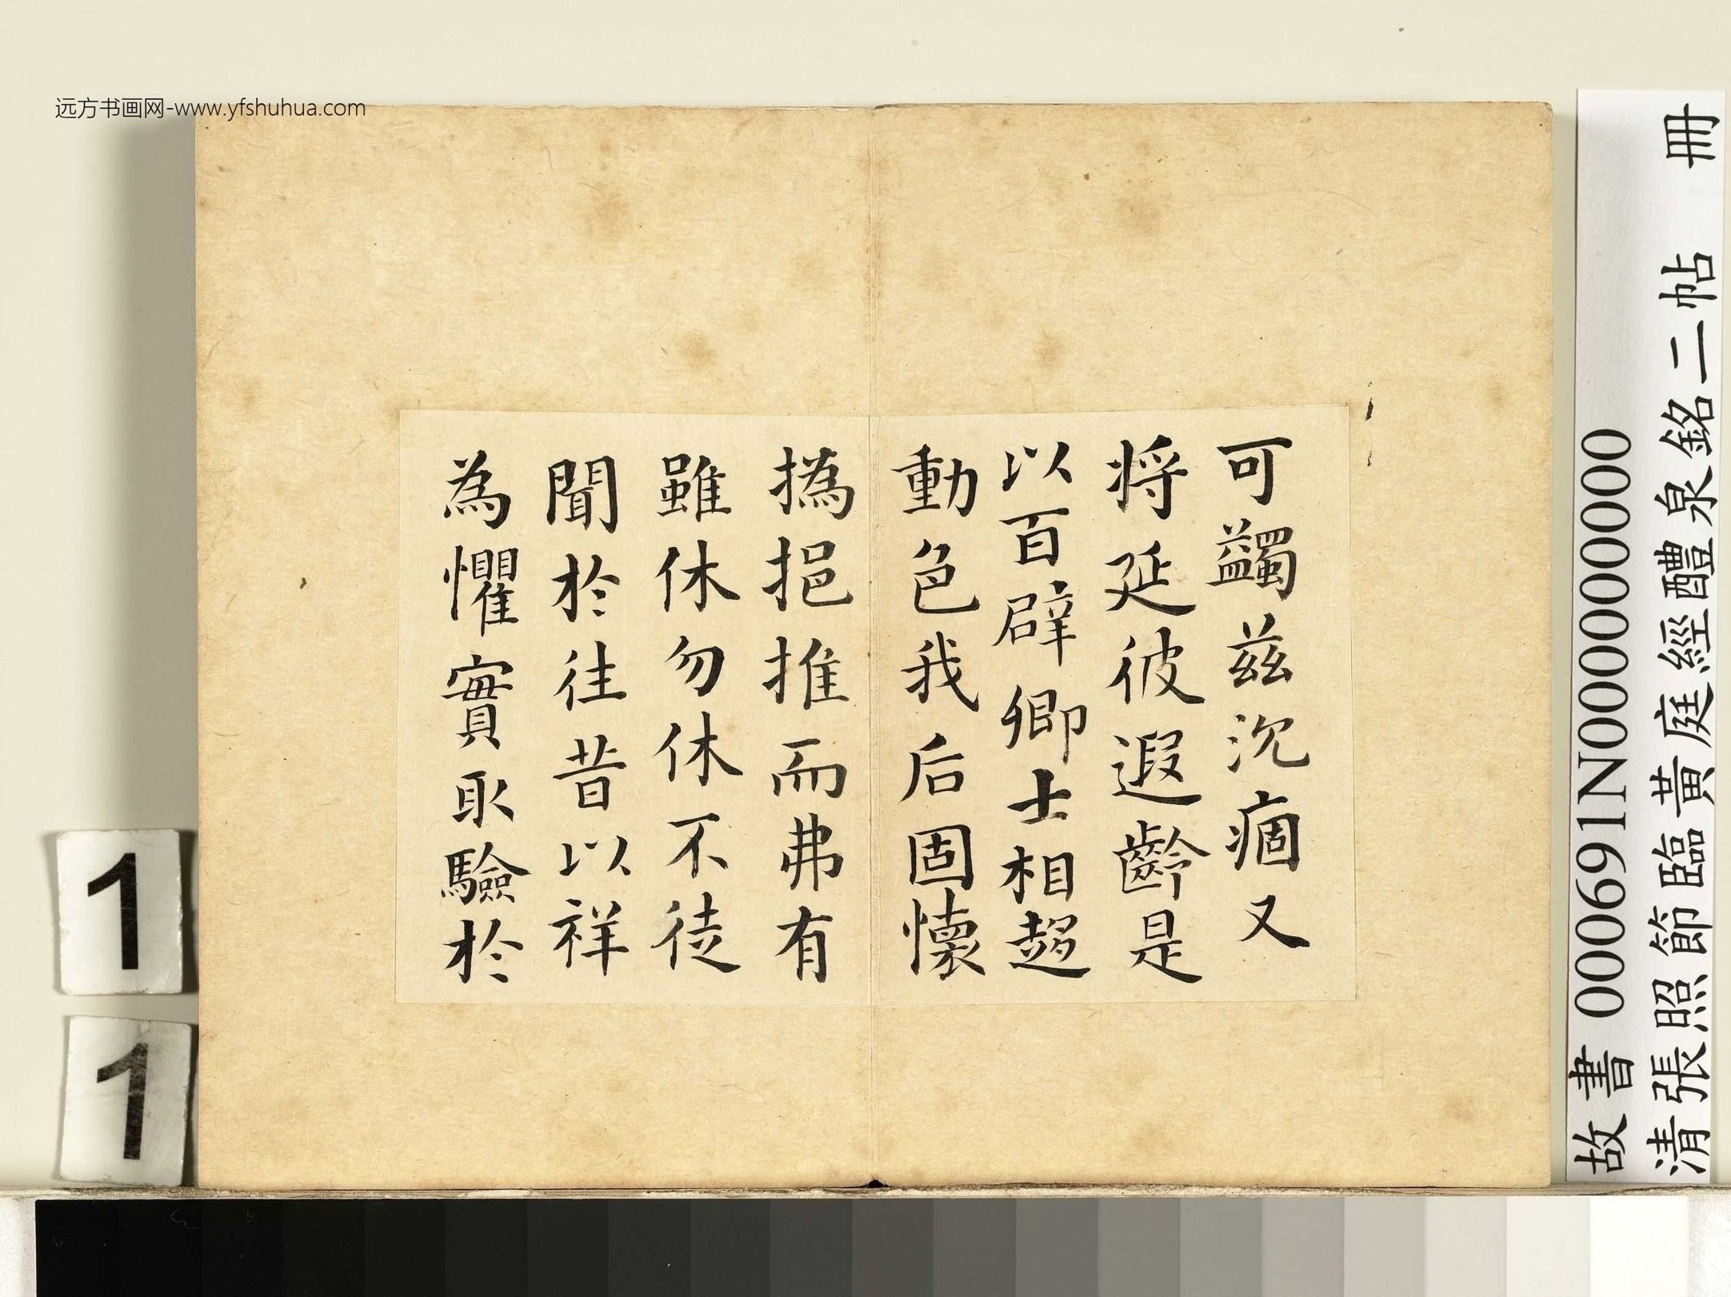 远方书画网-www.yfshuhua.com
可蠲茲沉痼又
将延彼遐齡是
以百辟卿士相趍
動色我后固懷
撝挹推而弗有
雖休勿休不徒
聞於往昔以祥
為懼實取驗於
故書 000691N000000000
清張照節臨黃庭經醴泉銘二帖 冊
1
1